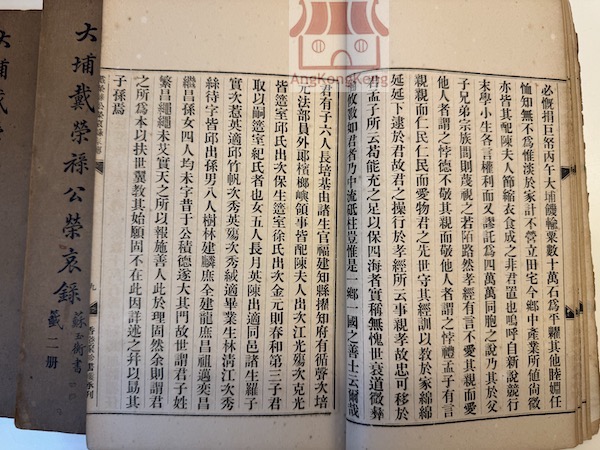 必慨捐巨帑丙午大埔饑輸粟數十萬石為平糶其他睦婣任
恤知無不為惟淡於家計不營立田宅今鄉中產業所値尙微
亦皆其配陳夫人節縮衣食成之非君置也嗚呼自新說競行
末學小生各言權利而又謬託為四萬萬同胞之說乃其於父
子兄弟宗族間則蔑視之若陌路然孝經有言不愛其親而愛
他人者謂之悖德不敬其親而敬他人者謂之悖禮孟子有言
親親而仁民仁民而愛物君之先世守其經訓以教於家綿綿
延延下逮於君故君之操行於孝經所云事親孝故忠可移於
君孟子所云苟能充之足以保四海者實稱無愧世衰道微彝
攸斁如君者乃中流砥柱豈惟是一鄉一國之善士云爾哉
君有子六人長培基由諸生官福建知縣擢知府有循聲次培
元法部員外郎檳榔嶼領事皆配陳夫人出次江光殤次克光
皆簉室邱氏出次保生簉室徐氏出次金元則春和第三子君
取以嗣簉室紀氏者也女五人長月英陳出適同邑諸生羅子
實次惹英適邱竹帆次秀英殤次秀絨適畢業生林濟江次秀
絲待字皆邱出孫男八人樹林建麟庶全建龍庶昌祖適奕昌
繼昌孫女四人均未字昔于公積德遂大其門故世謂君子姓
繁昌繩繩未艾實天之所以報施善人此於理固然余則謂君
之所為本以扶世翼教其始願固不在此因詳述之幷以勗其
子孫焉
九
大埔戴榮祿公榮哀錄
蘇玉衡書
籤二册
大埔戴
AngKongKeng